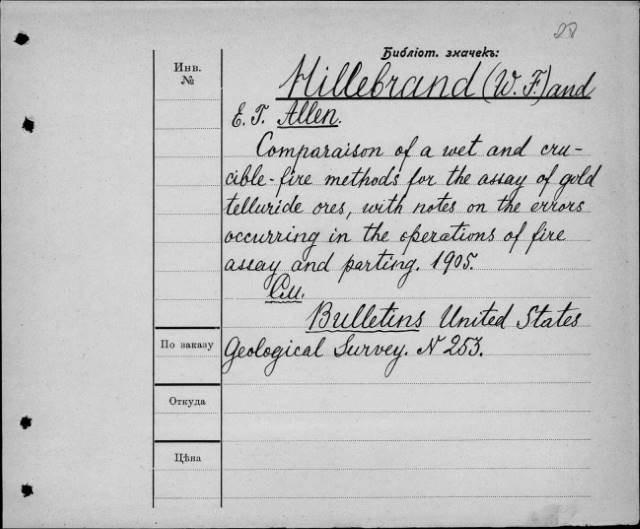 28
Библіот. значекъ:
Инв.
№
Hillebrand (W. F.) and
E. T. Allen.
Comparaison of a wet and cru-
cible-fire methods for the assay of gold
telluride ores, with notes on the errors
occurring in the operations of fire
assay and parting. 1905.
См.
Bulletins United States
По заказу
Geological Survey. N 253.
Откуда
Цѣна